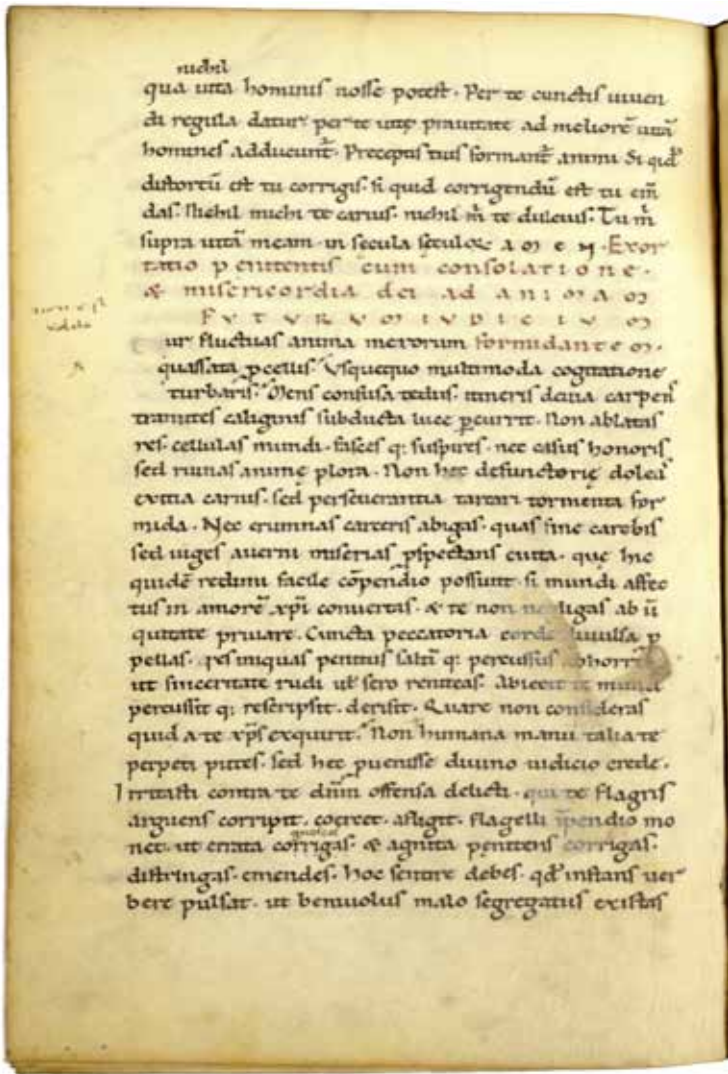 nichil
qua uita hominis nosse potest. Per te cunctis uiuen
di regula datur per te uitę prauitate ad meliorē uitā
homines adducunt̄. Preceptis tuis formant̄ animi Si qid
distortū est tu corrigis. si quid corrigendū est tu em̄
das. Nichil michi te carius. nichil m̄ te dulcius. Tu m̄
supra uitā meam. in secula sęculoꝝ a m e n. Exor
tatio penitentis cum consolatione.
& misericordia dei ad animam
FVTVRVM IVDICIVM
ur fluctuas anima merorum formidantem.
quassata ꝓcellis. Vsquequo multimoda cogitatione
turbaris. Mens confusa tedus. itineris deuia carpens
tramites caliginis subducta luce ꝑcurrit. Non ablatas
res. cellulas mundi. fasces q; suspires. nec casus honoris
sed ruinas animę plora. Non hec defunctorię doleas
exitia carnis. sed perseuerantia tartari tormenta for
mida. Nec erumnas carceris abigas. quas sine carebis
sed iuges auerni miserias ꝓspectans euita. que hic
quidē redimi facile cōpendio possunt. si mundi affec
tus in amorē xp̄i conuertas. & te non negligas ab ii
quitate priuare. Cuncta peccatoria corde auulsa ꝓ
pellas. res iniquas penitus saltī q; percussus abhorr
ut sinceritate rudi ul' sero reniteas. Abiecit te
percussit q; rescripsit. derisit. Quare non consideras
quid a te xp̄s exquirit. Non humana manu talia te
perpeti putes. sed hec puenisse diuino iudicio crede.
Irritasti contra te dn̄m offensa delicti. qui te flagris
arguens corripit. coercet. afligit. flagelli īpendio mo
net. ut errata corrigas. & agnita penitens corrigas.
distringas. emendes. hoc sentire debes. qd' instans uer
bere pulsat. ut beniuolus malo segregatus existas